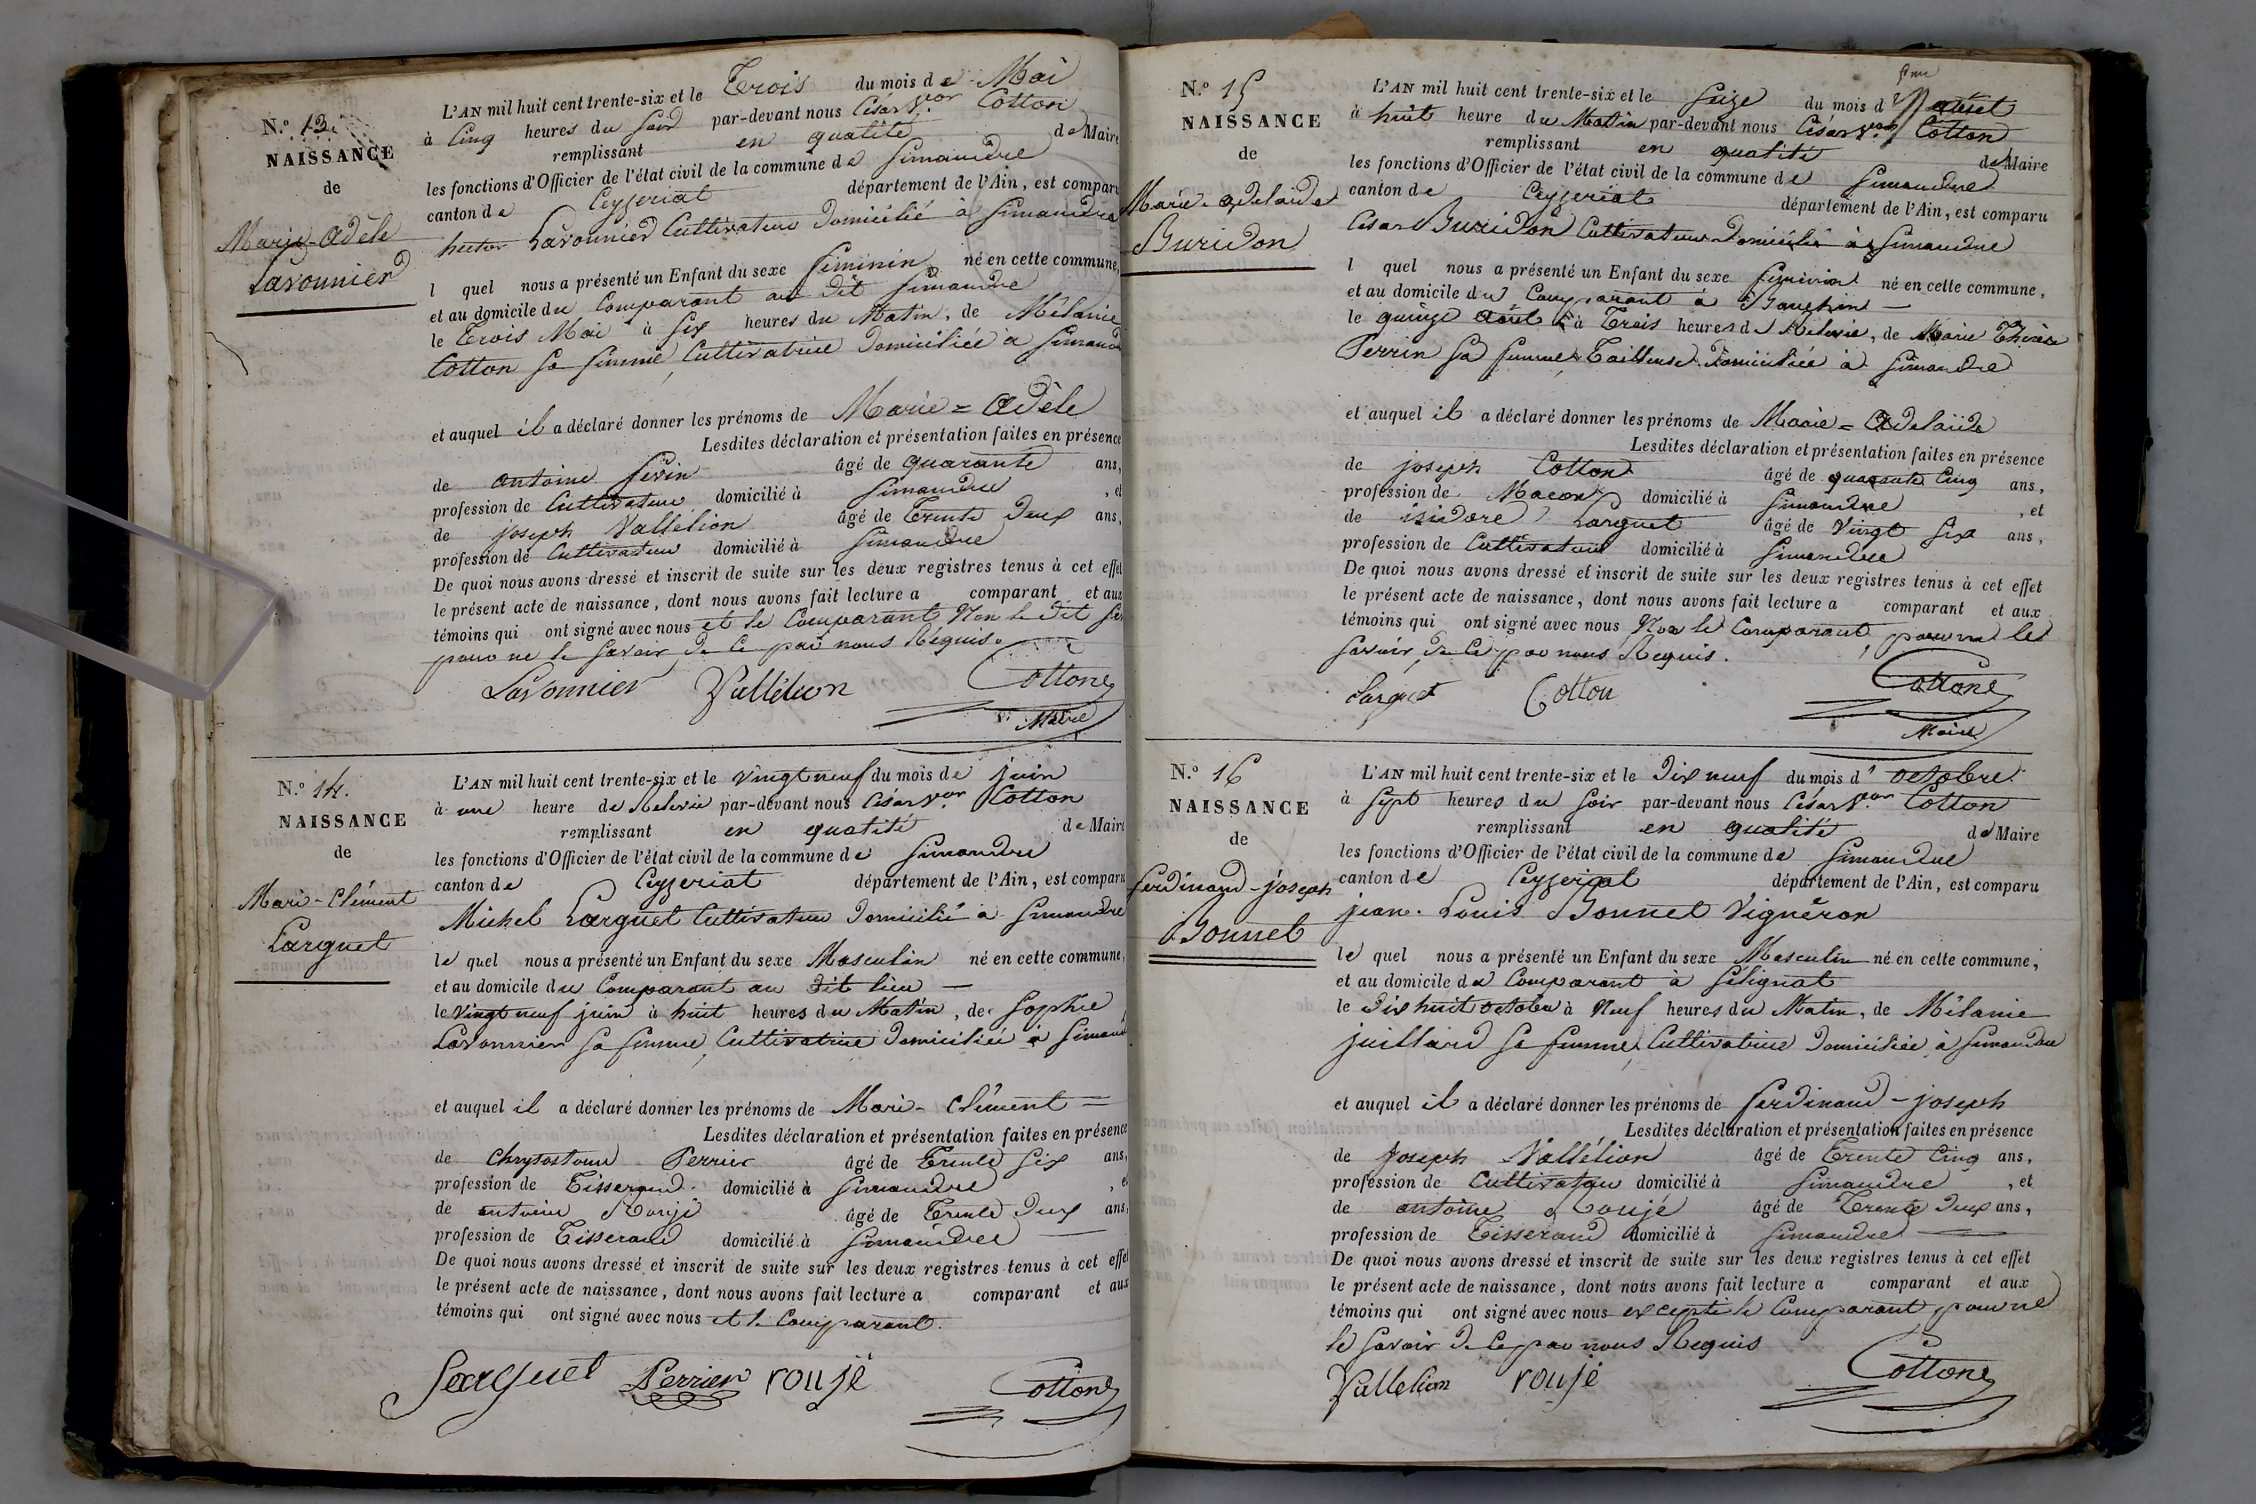 N.o 13.
NAISSANCE
de
Marie-Adèle
Lavonnier
L'AN mil huit cent trente-six et le Trois du mois de Mai
à Cinq heures du soir par-devant nous César Vor Cotton
remplissant en qualité de Maire
les fonctions d'Officier de l'état civil de la commune de Simandre
canton de Ceyzeriat département de l'Ain, est comparu
hector Lavonnier Cultivateur Domicilié à Simandre
l quel nous a présenté un Enfant du sexe féminin né en cette commune,
et au domicile du Comparant au dit Simandre
le Trois Mai à Six heures du Matin, de Mélanie
Cotton sa femme, Cultivatrice Domiciliée à Simand
et auquel il a déclaré donner les prénoms de Marie = Adèle
Lesdites déclaration et présentation faites en présence
de antoine âgé de quarante ans,
profession de Cultivateur domicilié à Simandre , et
de joseph Vallélion âgé de Trente Deux ans,
profession de Cultivateur domicilié à Simandre
De quoi nous avons dressé et inscrit de suite sur les deux registres tenus à cet effet
le présent acte de naissance, dont nous avons fait lecture a comparant et aux
témoins qui ont signé avec nous et le Comparant Non le Dit
pour ne le savoir de ce par nous Requis.
Lavonnier Vallélion Cotton
Maire
N.o 14.
NAISSANCE
de
Mari-Clément
Larguet
L'AN mil huit cent trente-six et le vingt neuf du mois de juin
à une heure de Relevée par-devant nous César Vor Cotton
remplissant en qualité de Maire
les fonctions d'Officier de l'état civil de la commune de Simandre
canton de Ceyzeriat département de l'Ain, est comparu
Michel Larguet Cultivateur Domicilié à Simandre
le quel nous a présenté un Enfant du sexe Masculin né en cette commune,
et au domicile du Comparant au dit lieu —
le vingt neuf juin à huit heures du Matin, de Sophie
Lavonnier sa femme, Cultivatrice Domiciliée à Simand
et auquel il a déclaré donner les prénoms de Mari- Clément =
Lesdites déclaration et présentation faites en présence
de Chrysostome Perrier âgé de Trente Six ans,
profession de Tisserand domicilié à Simandre , et
de antoine Roujé âgé de Trente Deux ans,
profession de Tisserand domicilié à Simandre —
De quoi nous avons dressé et inscrit de suite sur les deux registres tenus à cet effet
le présent acte de naissance, dont nous avons fait lecture a comparant et aux
témoins qui ont signé avec nous et le Comparant.
Larguet Perrier roujé Cotton
N.o 15
NAISSANCE
de
Marie-Adelaide
Buridon
L'AN mil huit cent trente-six et le Seize du mois d'aout
à huit heure du Matin par-devant nous César Vor Cotton
remplissant en qualité de Maire
les fonctions d'Officier de l'état civil de la commune de Simandre
canton de Ceyzeriat département de l'Ain, est comparu
César Buridon Cultivateur Domicilié à Simandre
l quel nous a présenté un Enfant du sexe féminin né en cette commune,
et au domicile du Comparant à —
le quinze aout à Trois heures de Relevée, de Marie Thérèse
Perrin sa femme, Tailleuse Domiciliée à Simandre
et auquel il a déclaré donner les prénoms de Marie = Adelaïde
Lesdites déclaration et présentation faites en présence
de joseph Cotton âgé de quarante Cinq ans,
profession de Macon domicilié à Simandre , et
de isidore Larguet âgé de Vingt Six ans,
profession de Cultivateur domicilié à Simandre
De quoi nous avons dressé et inscrit de suite sur les deux registres tenus à cet effet
le présent acte de naissance, dont nous avons fait lecture a comparant et aux
témoins qui ont signé avec nous Non le Comparant, pour ne le
savoir, de ce par nous Requis.
Larguet Cotton Cotton
Maire
N.o 16
NAISSANCE
de
ferdinand-joseph
Bonnet
L'AN mil huit cent trente-six et le Dix neuf du mois d' octobre
à Sept heures du soir par-devant nous César Vor Cotton
remplissant en qualité de Maire
les fonctions d'Officier de l'état civil de la commune de Simandre
canton de Ceyzeriat département de l'Ain, est comparu
jean-Louis Bonnet Vignéron
le quel nous a présenté un Enfant du sexe Masculin né en cette commune,
et au domicile du Comparant à Sélignat
le Dix huit octobre à Neuf heures du Matin, de Mélanie
juillard sa femme, Cultivatrice Domiciliée à Simandre
et auquel il a déclaré donner les prénoms de ferdinand-joseph
Lesdites déclaration et présentation faites en présence
de Joseph Vallélion âgé de Trente Cinq ans,
profession de Cultivateur domicilié à Simandre , et
de antoine Roujé âgé de Trente Deux ans,
profession de Tisserand domicilié à Simandre —
De quoi nous avons dressé et inscrit de suite sur les deux registres tenus à cet effet
le présent acte de naissance, dont nous avons fait lecture a comparant et aux
témoins qui ont signé avec nous excepté le Comparant pour ne
le savoir de ce par nous Requis
Vallelion roujé Cotton